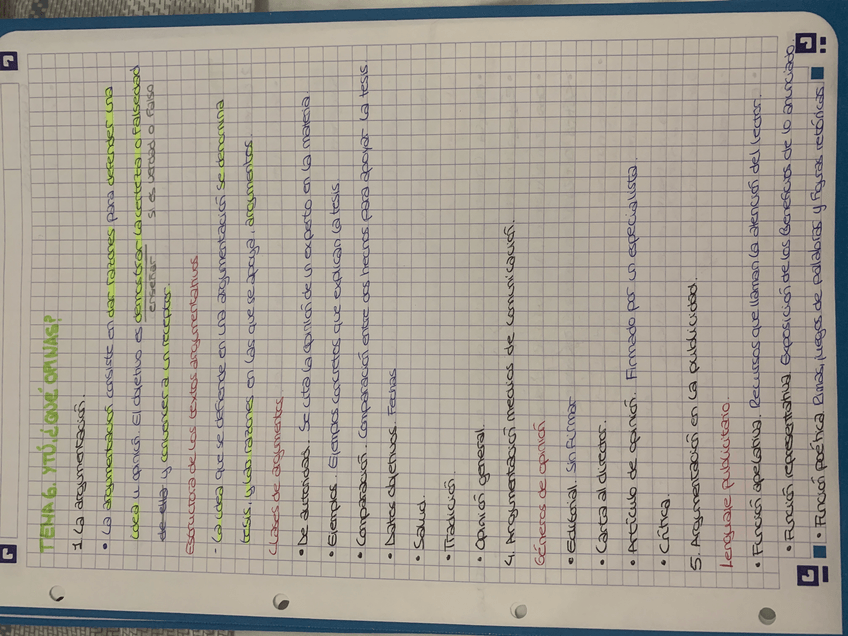 TEMA 6. Y TÚ, ¿QUÉ OPINAS?
1. La argumentación.
• La argumentación consiste en dar razones para defender una
idea u opinión. El objetivo es demostrar la certeza o falsedad
enseñar si es verdad o falso
de ella y convencer a un receptor.
Estructura de los textos argumentativos.
- La idea que se defiende en una argumentación se denomina
tesis, y las razones en las que se apoya, argumentos.
Clases de argumentos.
• De autoridad. Se cita la opinión de un experto en la materia.
• Ejemplos. Ejemplos concretos que explican la tesis.
• Comparación. Comparación entre dos hechos para apoyar la tesis
• Datos objetivos. Fechas
• Salud.
• Tradición.
• Opinión general.
4. Argumentación medios de comunicación.
Géneros de opinión
• Editorial. Sin firmar
• Carta al director.
• Artículo de opinión. Firmado por un especialista.
• Crítica.
5. Argumentación en la publicidad.
Lenguaje publicitario.
• Función apelativa. Recursos que llaman la atención del lector.
• Función representativa. Exposición de los Beneficios de lo anunciado.
• Función poética. Rimas, juegos de palabras y figuras retóricas.